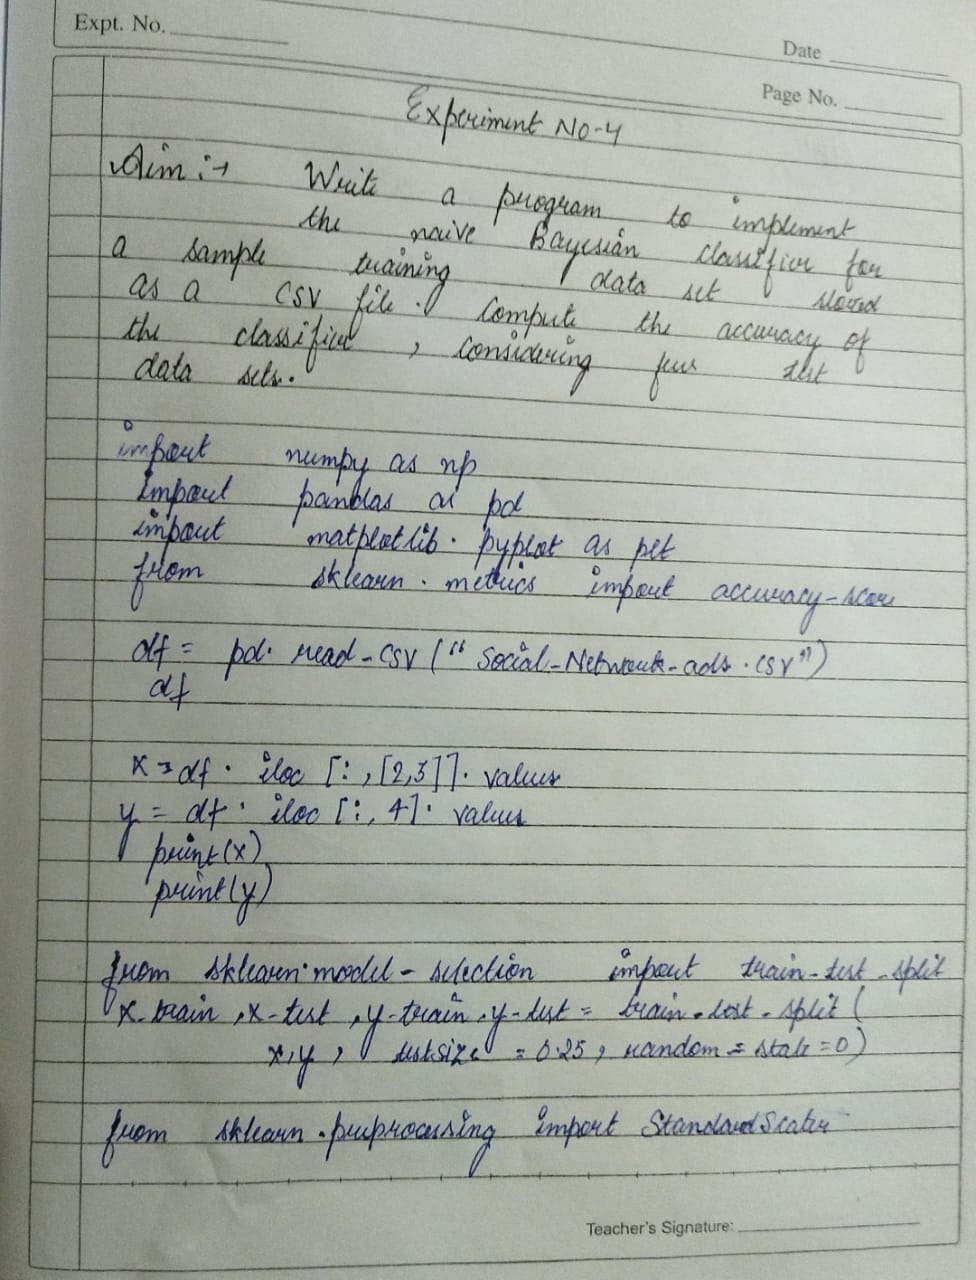 Expt. No.
Date
Page No.
Experiment No-4
Aim :→ Write a program to implement
the naive Bayesian classifier for
a sample training data set stored
as a CSV file. Compute the accuracy of
the classifier, considering few test
data sets.
import numpy as np
import pandas as pd
import matplotlib. pyplot as plt
from sklearn. metrics import accuracy-score
df = pd. read-csv (“ Social-Network-ads .csv”)
df
x = df. iloc [:,[2,3]]. values
y = df. iloc [:, 4]. values
print(x)
print(y)
from sklearn.model-selection import train-test-split
x-train ,x-test ,y-train,y-test = train-test-split (
x,y, testsize = 0.25, random = state =0)
from sklearn.preprocessing import StandardScaler
Teacher's Signature: